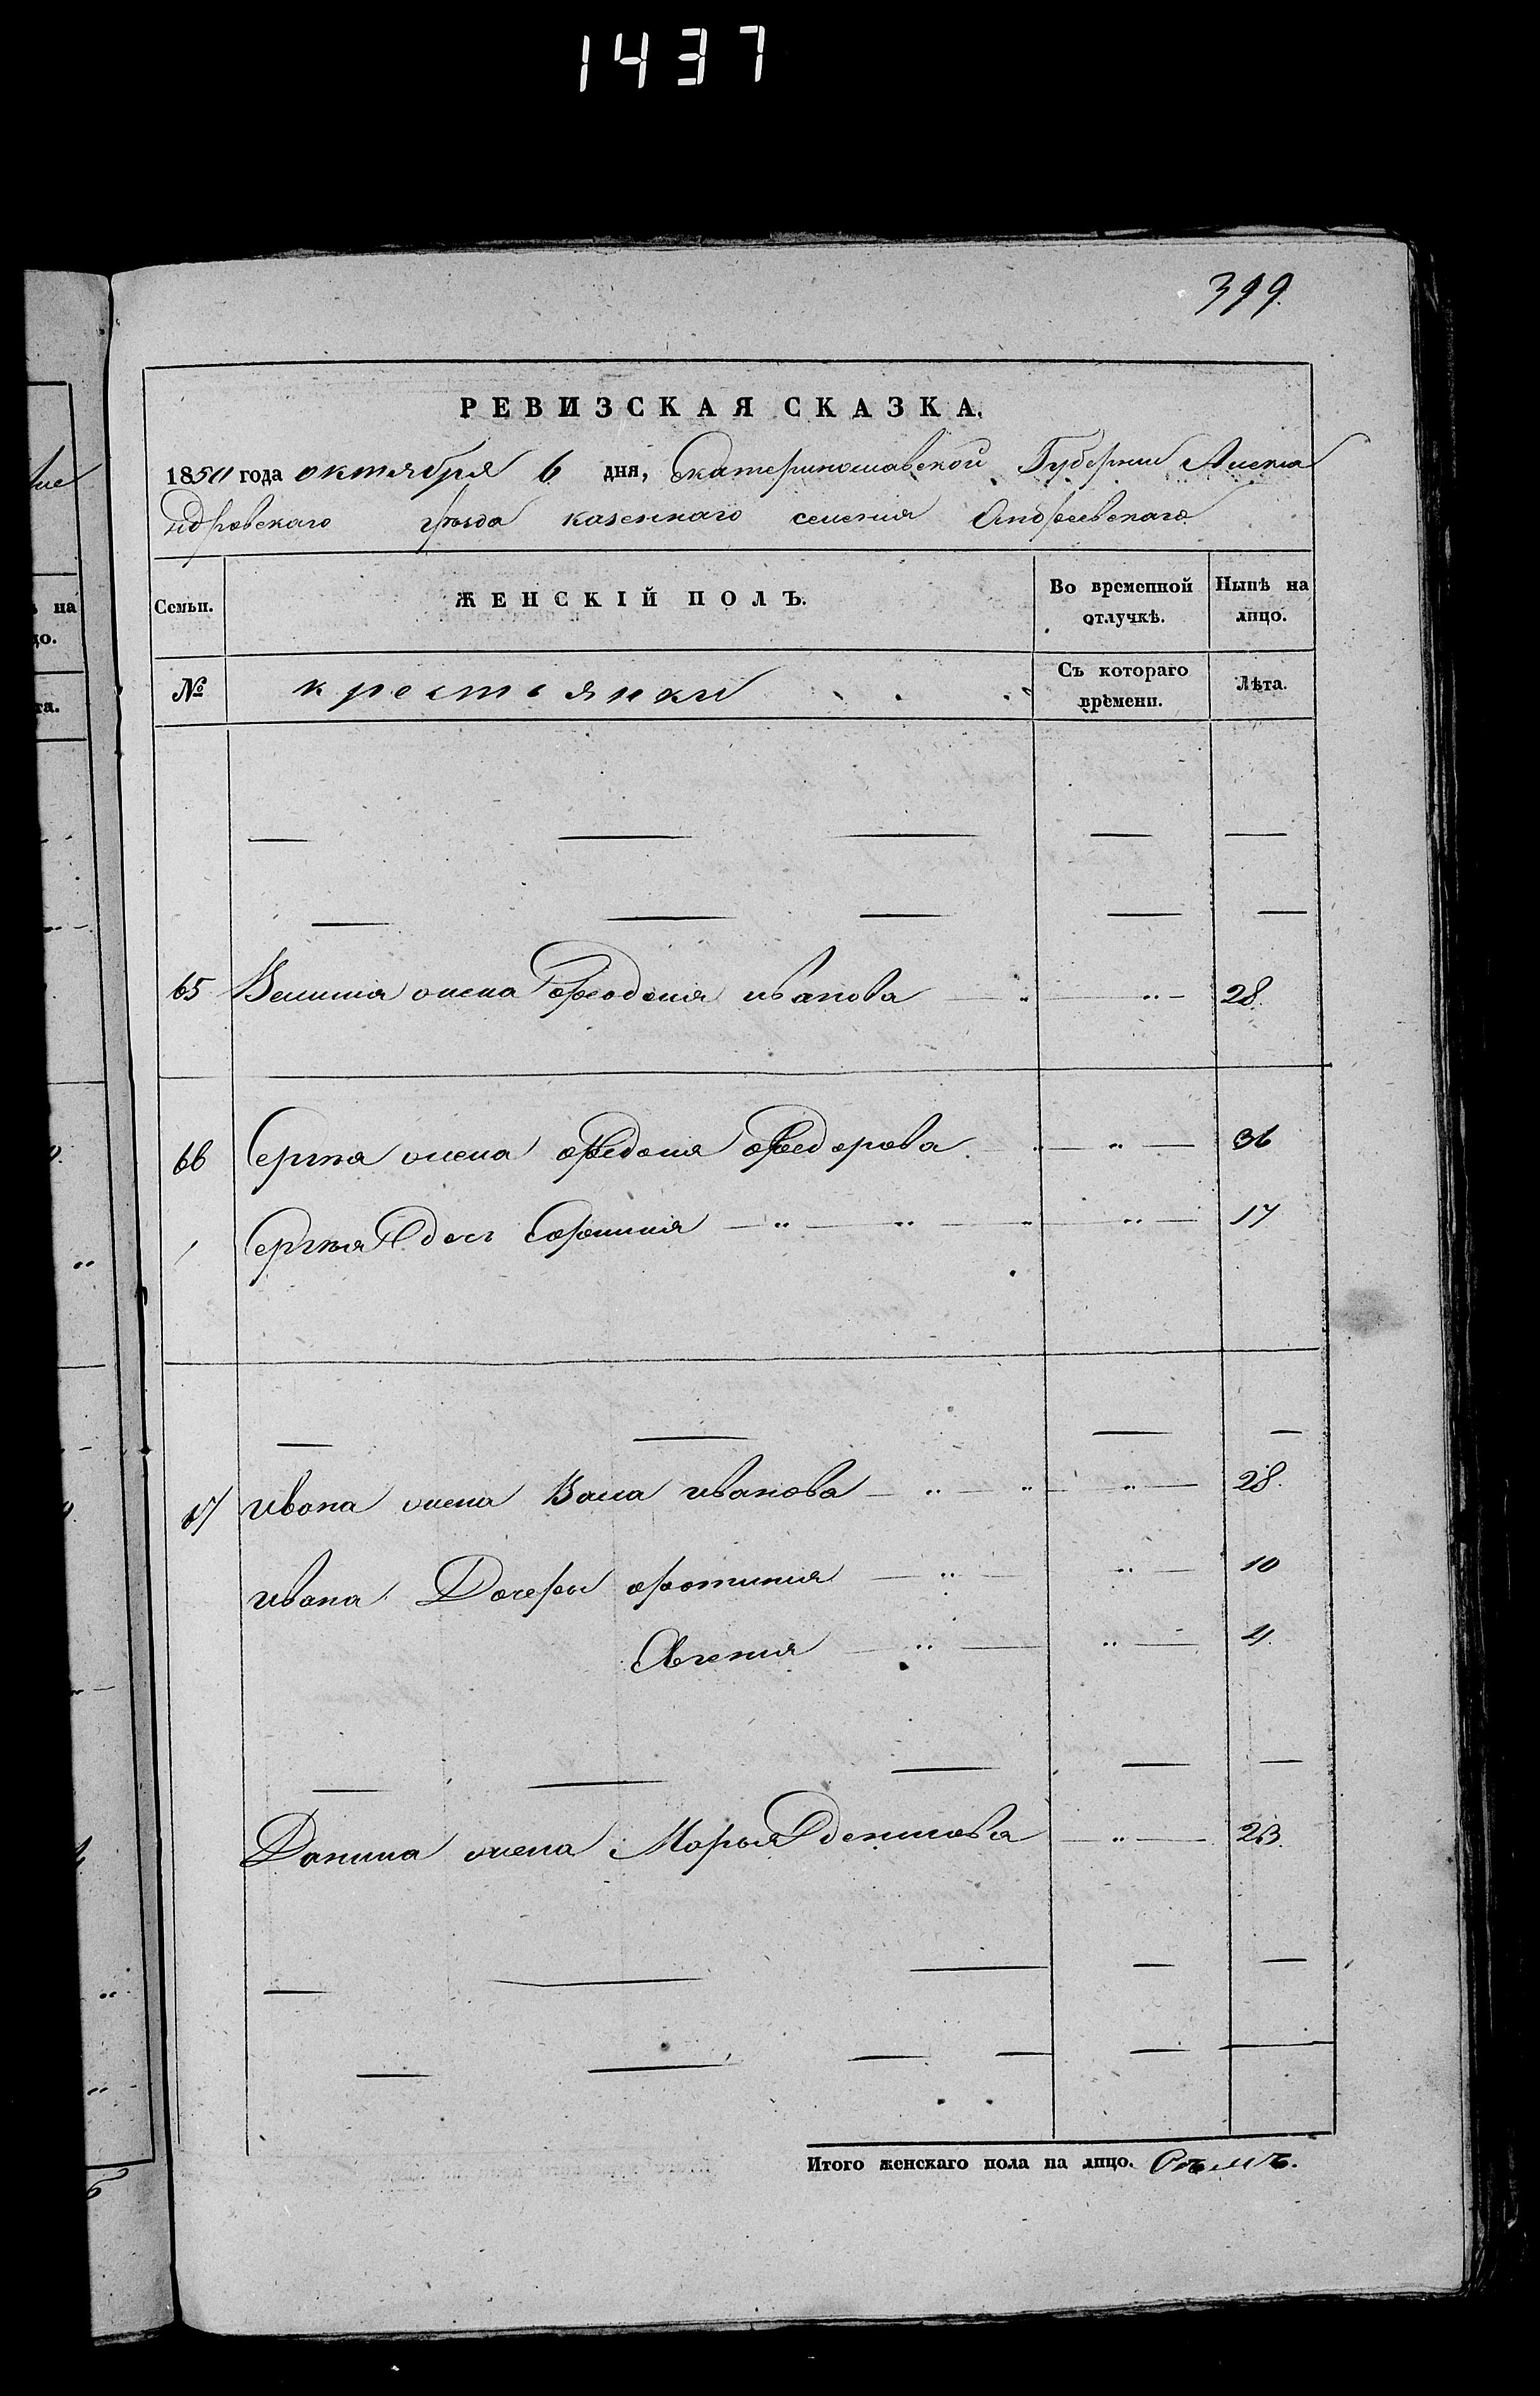 1437
399.
РЕВИЗСКАЯ СКАЗКА.
1850 года октября 6 дня, Екатеринославской Губернии Алекса
ндровскаго уѣзда казеннаго селения Андреевскаго
Семьи. ЖЕНСКІЙ ПОЛЪ. Во временной отлучкѣ. Нынѣ на лицо.
№ крестьянки Съ котораго времени. Лѣта.
65 жена Феодосия иванова 28.
66 Сергѣя жена Федосия Федорова 36
Сергѣя дочь 17
67 ивана жена Васа иванова 28.
ивана Дочеры фотиния 10
Евгения 4.
Данила жена Марья 23.
Итого женскаго пола на лицо. Семь.